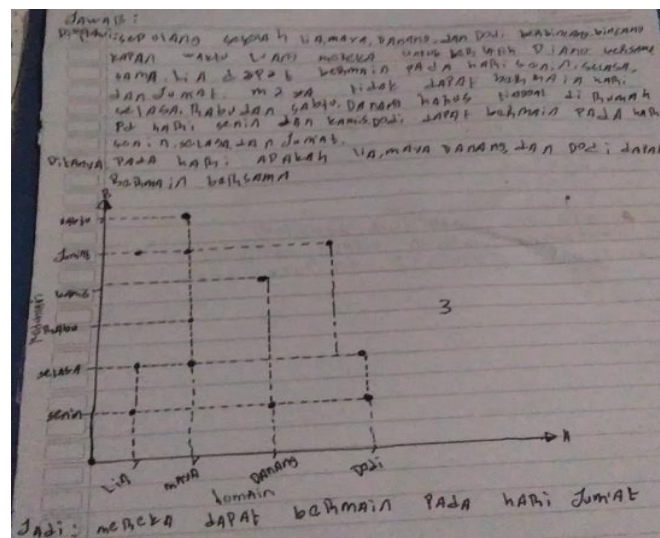 JAWAB:
sepulang sekolah LiA, mAYA, DANANG, dAn Dodi berbincang-bincang
KAPAN wAktu luang meReKA untuk berlatih PiAno bersAmA
SAmA. LiA dAPAt beRmAin PAdA hARi Senin, SelASA,
dAn JumAt. mAYA tidak dAPAt beRmAin hARi
SelASA, RAbu dAn SAbtu. DANANG haRus tinggal di RumAh
Pd hARi Senin dAn KAmis. Dodi dAPAt beRmAin PAdA hARi
Senin, SelASA dAn JumAt.
DitAnyA PAdA hARi APAkAh LiA, mAYA DANANG dAn Dodi dAPAt
BeRmAin beRSAmA
B
SAbtu
JumAt
KAmis
RAbu
3
SelASA
Senin
A
LiA
mAYA
DANANG
Dodi
Domain
JAdi: meReKA dAPAt beRmAin PAdA hARi JumAt